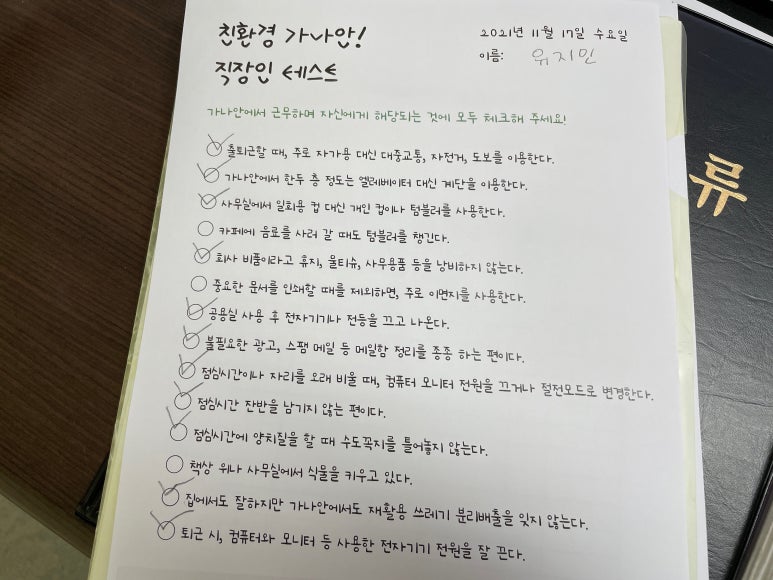 친환경 가나안!
직장인 테스트
2021년 11월 17일 수요일
이름: 유지민
가나안에서 근무하며 자신에게 해당되는 것에 모두 체크해 주세요!
출퇴근할 때, 주로 자가용 대신 대중교통, 자전거, 도보를 이용한다.
가나안에서 한두 층 정도는 엘레베이터 대신 계단을 이용한다.
사무실에서 일회용 컵 대신 개인 컵이나 텀블러를 사용한다.
카페에 음료를 사러 갈 때도 텀블러를 챙긴다.
회사 비품이라고 휴지, 물티슈, 사무용품 등을 낭비하지 않는다.
중요한 문서를 인쇄할 때를 제외하면, 주로 이면지를 사용한다.
공용실 사용 후 전자기기나 전등을 끄고 나온다.
불필요한 광고, 스팸 메일 등 메일함 정리를 종종 하는 편이다.
점심시간이나 자리를 오래 비울 때, 컴퓨터 모니터 전원을 끄거나 절전모드로 변경한다.
점심시간 잔반을 남기지 않는 편이다.
점심시간에 양치질을 할 때 수도꼭지를 틀어놓지 않는다.
책상 위나 사무실에서 식물을 키우고 있다.
집에서도 잘하지만 가나안에서도 재활용 쓰레기 분리배출을 잊지 않는다.
퇴근 시, 컴퓨터와 모니터 등 사용한 전자기기 전원을 잘 끈다.
류